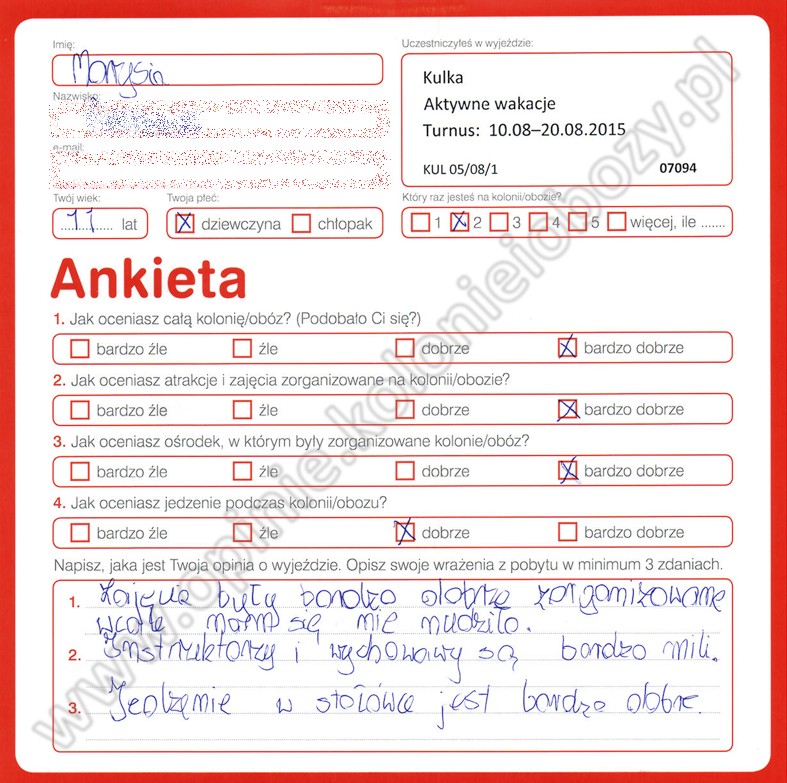 Imię:
Marysia
Uczestniczyłeś w wyjeździe:
Kulka
Aktywne wakacje
Turnus: 10.08–20.08.2015
KUL 05/08/1 07094
Nazwisko:
e-mail:
Twój wiek:
11 lat
Twoja płeć:
dziewczyna chłopak
Który raz jesteś na kolonii/obozie?
1 2 3 4 5 więcej, ile .......
Ankieta
1. Jak oceniasz całą kolonię/obóz? (Podobało Ci się?)
bardzo źle źle dobrze bardzo dobrze
2. Jak oceniasz atrakcje i zajęcia zorganizowane na kolonii/obozie?
bardzo źle źle dobrze bardzo dobrze
3. Jak oceniasz ośrodek, w którym były zorganizowane kolonie/obóz?
bardzo źle źle dobrze bardzo dobrze
4. Jak oceniasz jedzenie podczas kolonii/obozu?
bardzo źle źle dobrze bardzo dobrze
Napisz, jaka jest Twoja opinia o wyjeździe. Opisz swoje wrażenia z pobytu w minimum 3 zdaniach.
1. Zajęcia były bardzo dobrze zorganizowane
wcale nam się nie nudziło.
2. Instruktorzy i wychowawy są bardzo mili.
3. Jedzenie w stołówce jest bardzo dobre.
www.opinie.kolonieiobozy.pl